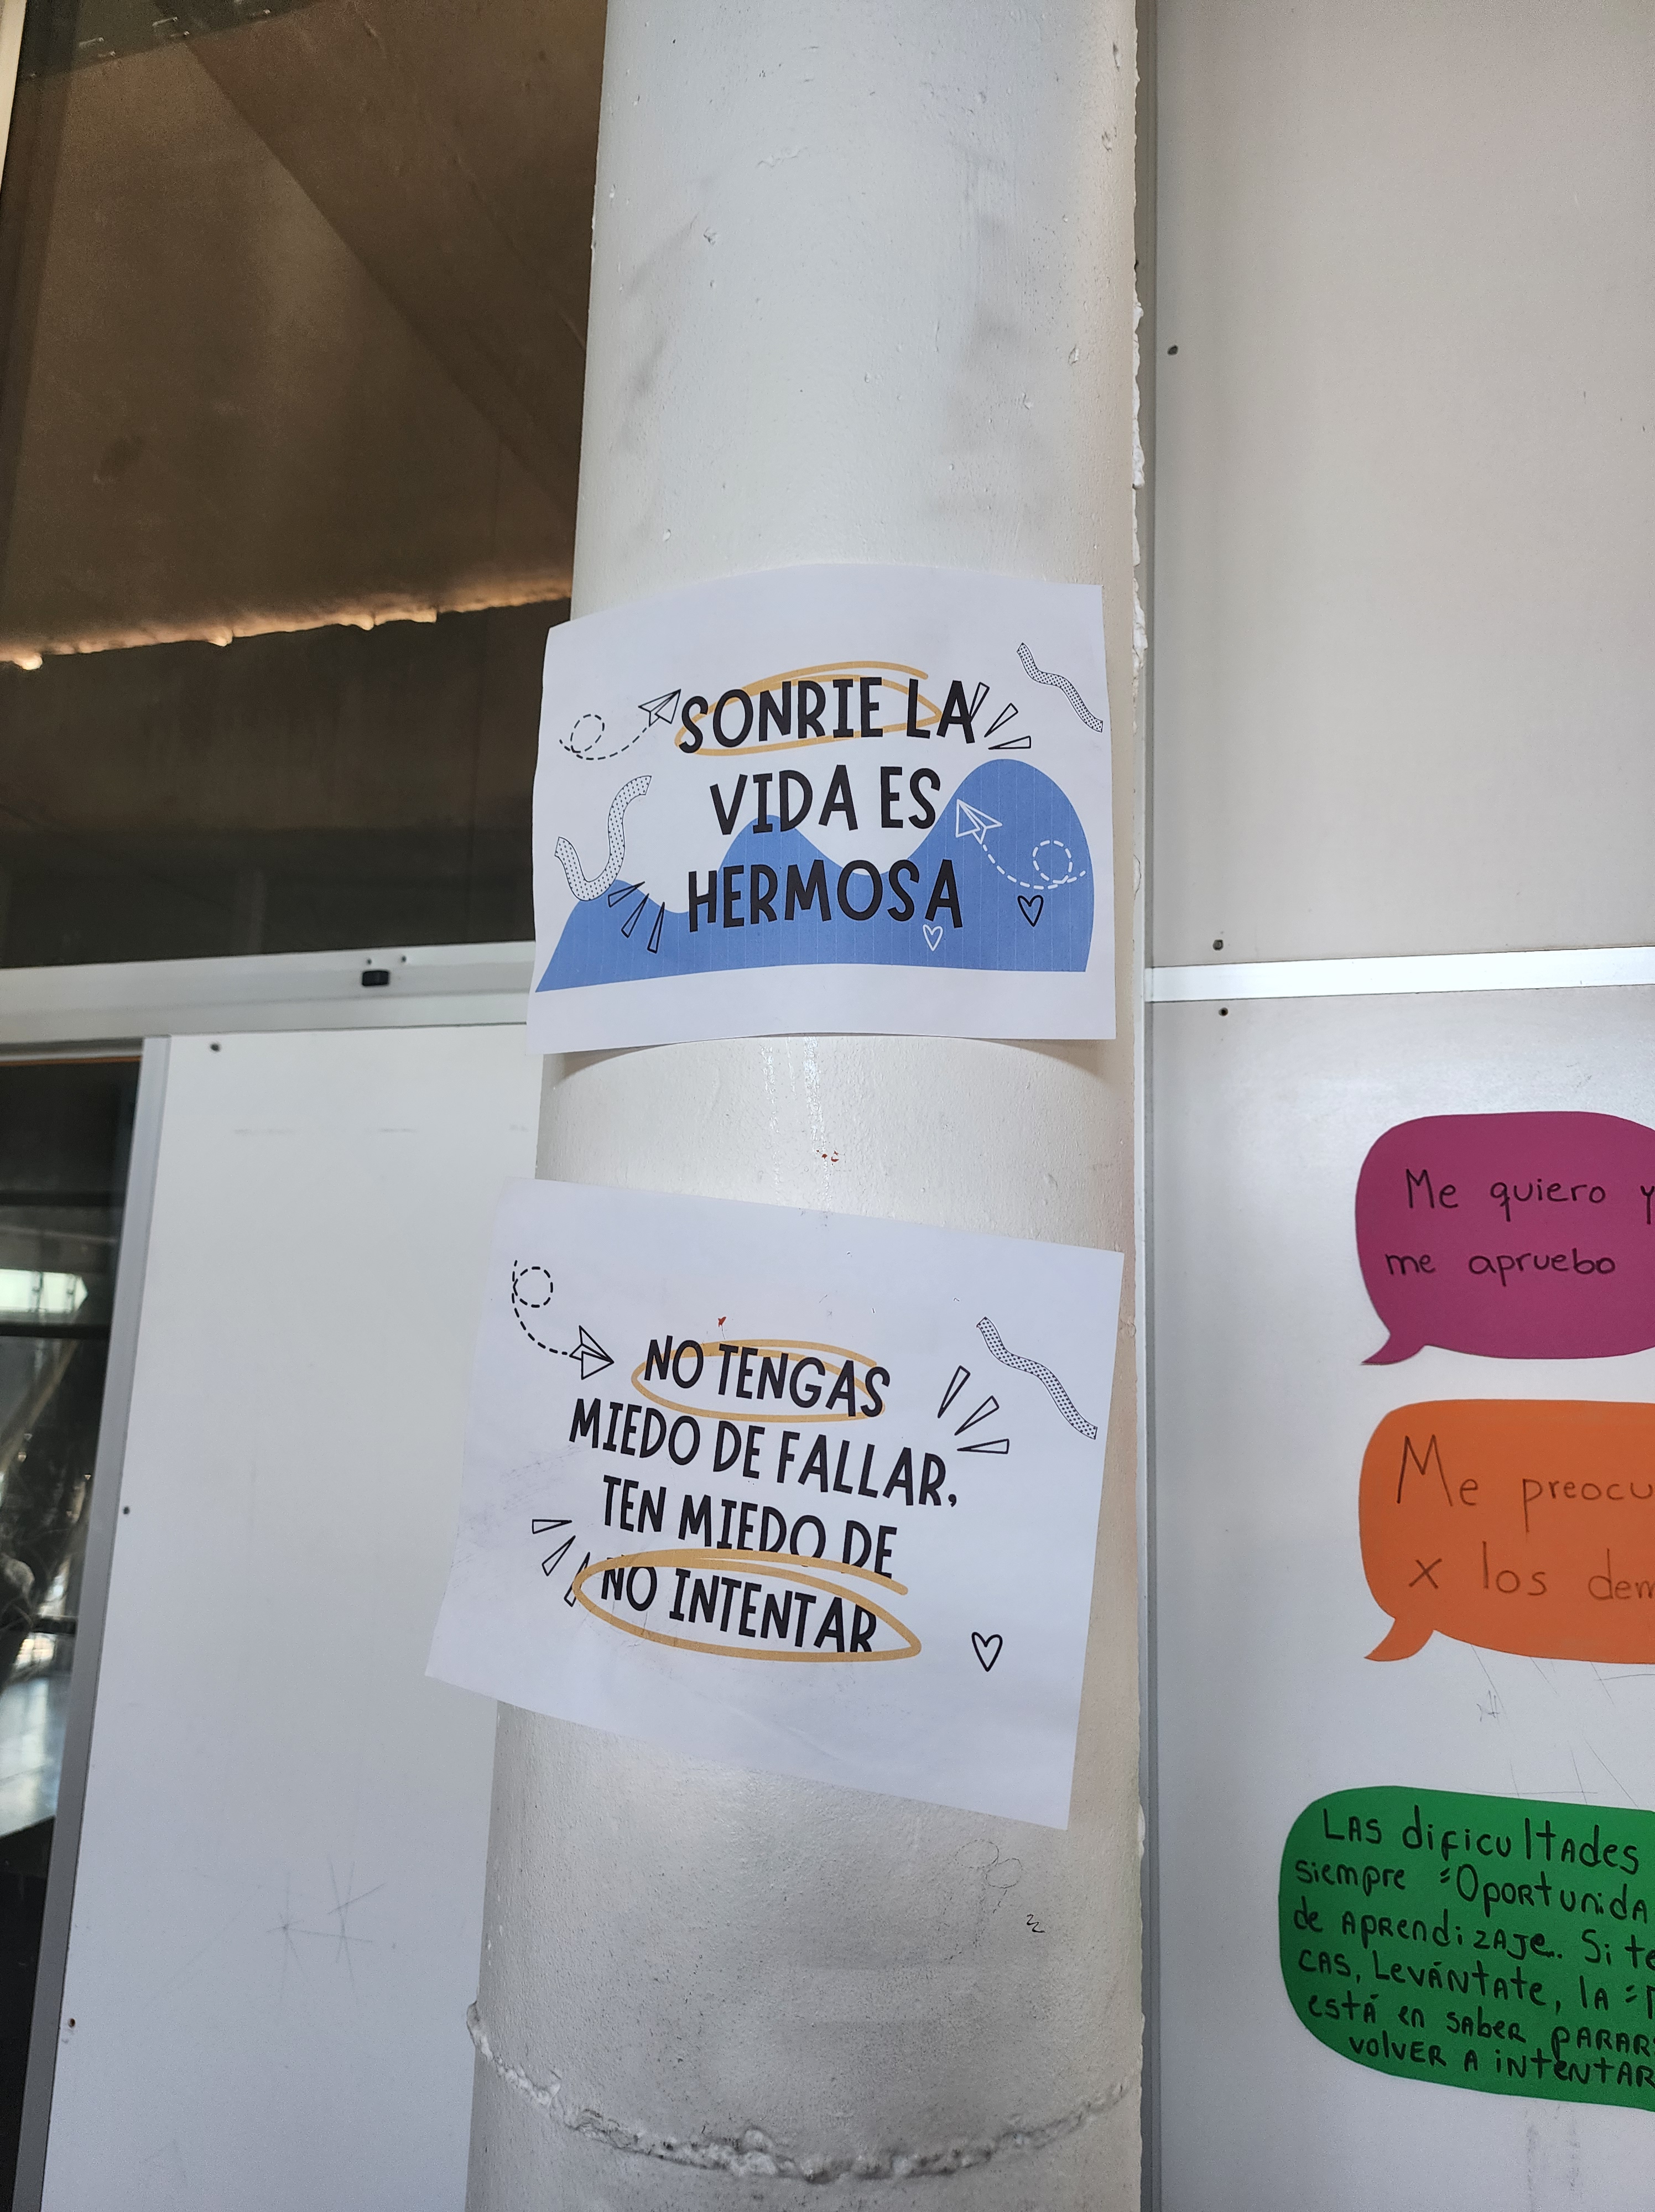 SONRIE LA
VIDA ES
HERMOSA
NO TENGAS
MIEDO DE FALLAR,
TEN MIEDO DE
NO INTENTAR
Me quiero y
me apruebo
Me preocu
x los dem
LAS dificultades
siempre "Oportunida
de aprendizaje. Si te
CAS, Levántate, la
está en saber parar
volver a intentar